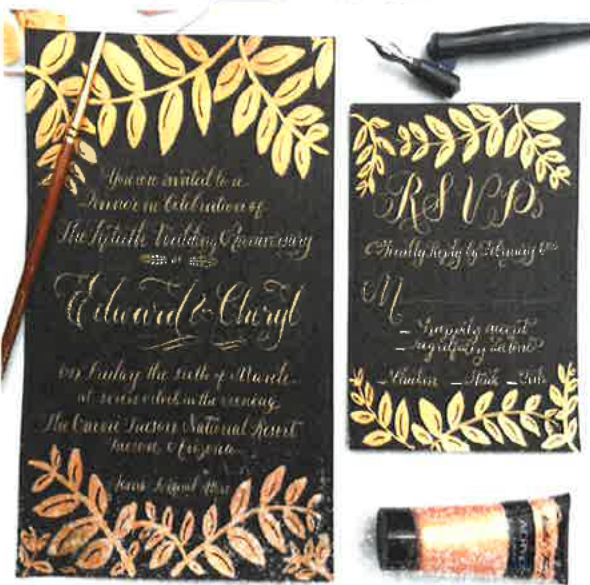 You are invited to a
Dinner in Celebration of
The Fiftieth Wedding Anniversary
of
Edward & Cheryl
on Friday the sixth of March
at seven o'clock in the evening
The Omni Tucson National Resort
Tucson, Arizona
RSVP
Kindly Reply by February 6th
M
Happily accept
regretfully decline
Chicken Steak Fish